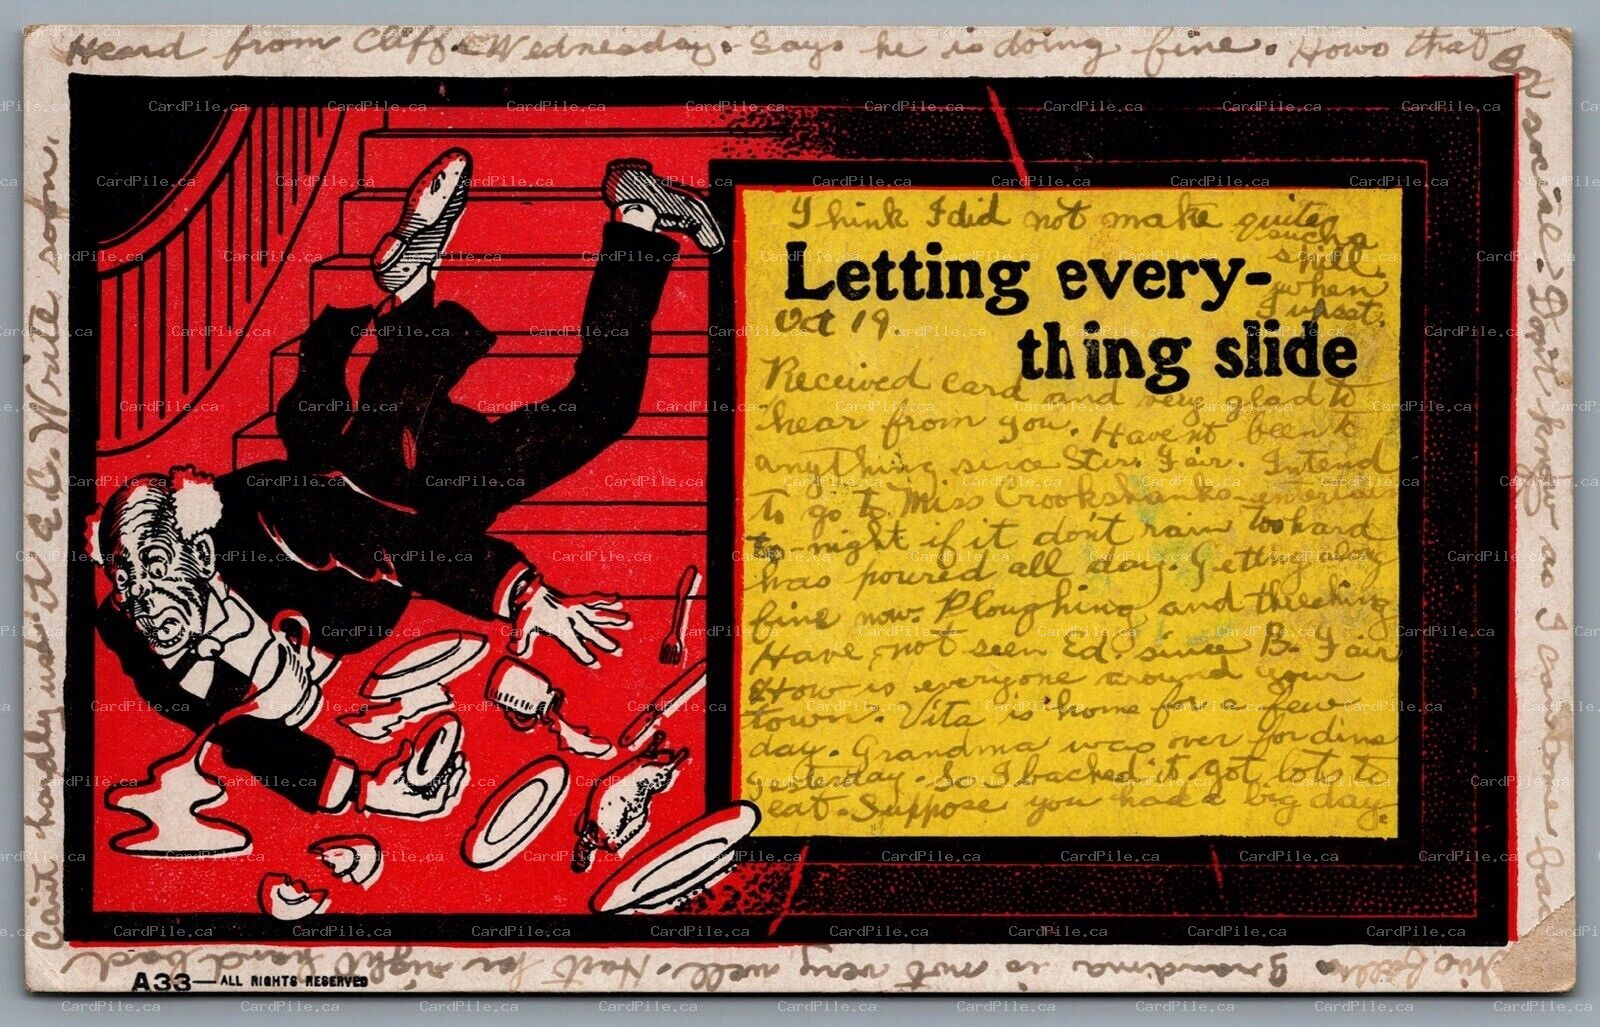 Heard from Cliff Wednesday. Says he is doing fine. Hows that
Box social. Don't know as I
Grandma is not very well. Hurt her right hand bad
Can't hardly use it E.C. Write soon.
Think I did not make quite
such a
spiel
when
I upset.
Letting every-
thing slide
Oct 19
Received card and very glad to
hear from you. Havent been to
anything since Stir. Fair. Intend
to go to Miss Crookshanks
to night if it dont rain too hard
has poured all day. Getting along
fine now. Ploughing and threshing
Have not seen Ed. since B. Fair
How is everyone around your
town. Vita is home for a few
day. Grandma was over for
yesterday. So I backed it. got lots to
eat. Suppose you had a big day.
A33— ALL RIGHTS RESERVED
CardPile.ca